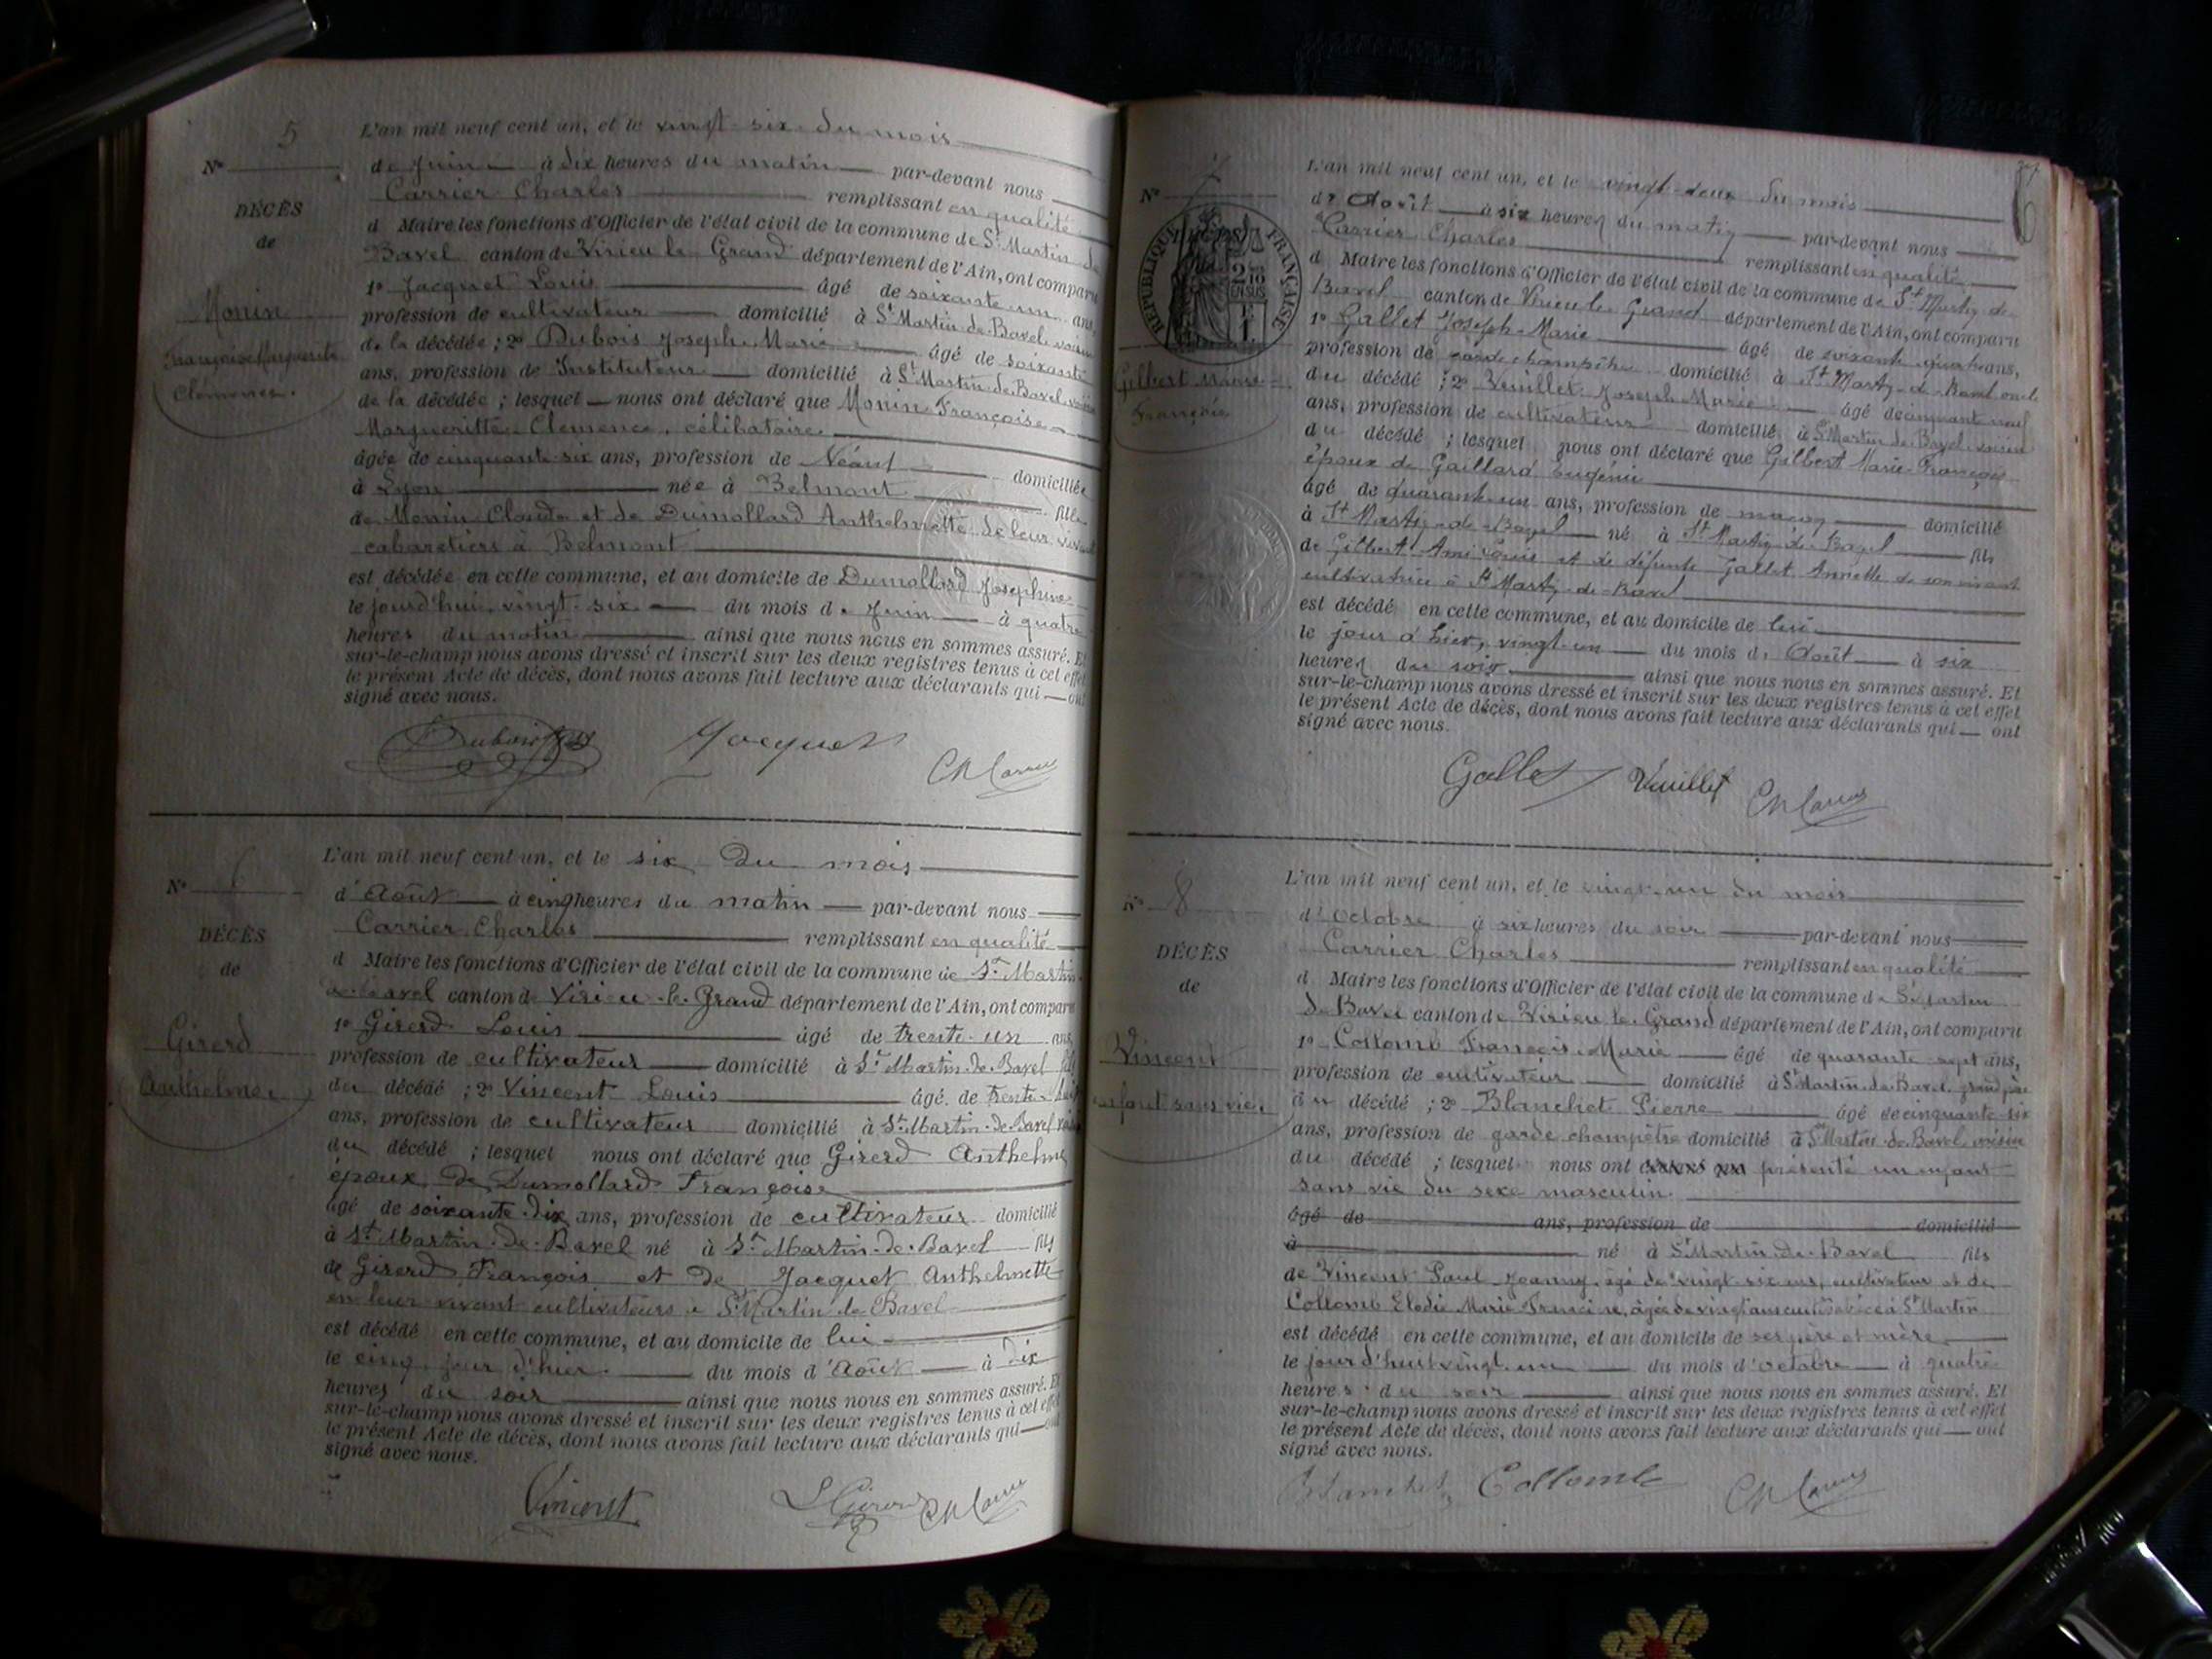 5
L'an mil neuf cent un, et le vingt-six du mois
N°
de Juin à dix heures du matin par-devant nous
Carrier Charles remplissant en qualité
DÉCÈS
d Maire les fonctions d'Officier de l'état civil de la commune de St Martin de
de
Bavel canton de Virieu le Grand département de l'Ain, ont comparu
1° Jacquet Louis âgé de soixante un ans,
Monin
profession de cultivateur domicilié à St Martin de Bavel voisin
Françoise Marguerite
de la décédée ; 2° Dubois Joseph Marie âgé de soixante
ans, profession de Instituteur domicilié à St Martin de Bavel voisin
Clémence.
de la décédée ; lesquels nous ont déclaré que Monin Françoise
Margueritte Clemence, célibataire
âgée de cinquante-six ans, profession de Néant domiciliée
à Lyon née à Belmont fille
de Monin Claude et de Dumollard Anthelmette de leur vivant
cabaretiers à Belmont
est décédée en cette commune, et au domicile de Dumollard Josephine
le jourd'hui vingt-six du mois de Juin à quatre
heures du matin ainsi que nous nous en sommes assuré. Et
sur-le-champ nous avons dressé et inscrit sur les deux registres tenus à cet effet
le présent Acte de décès, dont nous avons fait lecture aux déclarants qui ont
signé avec nous.
Dubois Jacquet Ch Carrier
L'an mil neuf cent un, et le six du mois
N° 6
d'Août à cinq heures du matin par-devant nous
Carrier Charles remplissant en qualité
DÉCÈS
d Maire les fonctions d'Officier de l'état civil de la commune de St Martin
de
de Bavel canton de Virieu-le-Grand département de l'Ain, ont comparu
1° Girerd Louis âgé de trente-un ans,
Girerd
profession de cultivateur domicilié à St Martin-de-Bavel fils
Anthelme
du décédé ; 2° Vincent Louis âgé de trente-huit
ans, profession de cultivateur domicilié à St Martin-de-Bavel voisin
du décédé ; lesquel nous ont déclaré que Girerd Anthelme
époux de Dumollard Françoise
âgé de soixante-dix ans, profession de cultivateur domicilié
à St Martin-de-Bavel né à St Martin-de-Bavel fils
de Girerd François et de Jacquet Anthelmette
en leur vivant cultivateurs à St Martin de Bavel
est décédé en cette commune, et au domicile de lui
le cinq jour d'hier du mois d'Août à dix
heures du soir ainsi que nous nous en sommes assuré. Et
sur-le-champ nous avons dressé et inscrit sur les deux registres tenus à cet effet
le présent Acte de décès, dont nous avons fait lecture aux déclarants qui ont
signé avec nous.
Vincent L Girerd Ch Carrier
L'an mil neuf cent un, et le vingt-deux du mois
N° 7
d'Août à six heures du matin par-devant nous
Carrier Charles remplissant en qualité
RÉPUBLIQUE FRANÇAISE
d Maire les fonctions d'Officier de l'état civil de la commune de St Martin de
Bavel canton de Virieu le Grand département de l'Ain, ont comparu
1° Gallet Joseph-Marie âgé de soixante-quatre ans,
profession de garde champêtre domicilié à St Martin-de-Bavel oncle
Gilbert Marie
du décédé ; 2° Vuillet Joseph Marie âgé de cinquante neuf
François
ans, profession de cultivateur domicilié à St Martin de Bavel voisin
du décédé ; lesquel nous ont déclaré que Gilbert Marie François
époux de Gaillard Eugénie
âgé de quarante-un ans, profession de maçon domicilié
à St Martin-de-Bavel né à St Martin-de-Bavel fils
de Gilbert et de défunte Gallet Annette de son vivant
cultivatrice à St Martin-de-Bavel
est décédé en cette commune, et au domicile de lui
le jour d'hier, vingt-un du mois d'Août à six
heures du soir ainsi que nous nous en sommes assuré. Et
sur-le-champ nous avons dressé et inscrit sur les deux registres tenus à cet effet
le présent Acte de décès, dont nous avons fait lecture aux déclarants qui ont
signé avec nous.
Gallet Vuillet Ch Carrier
L'an mil neuf cent un, et le vingt-un du mois
N° 8
d'Octobre à six heures du soir par-devant nous
Carrier Charles remplissant en qualité
DÉCÈS
d Maire les fonctions d'Officier de l'état civil de la commune de St Martin
de
de Bavel canton de Virieu le Grand département de l'Ain, ont comparu
1° Collomb François Marie âgé de quarante-sept ans,
Vincent
profession de cultivateur domicilié à St Martin de Bavel grand père
enfant sans vie
du décédé ; 2° Blanchet Pierre âgé de cinquante-six
ans, profession de garde champêtre domicilié à St Martin-de-Bavel voisin
du décédé ; lesquel nous ont présenté un enfant
sans vie du sexe masculin.
âgé de ans, profession de domicilié
à né à St Martin de Bavel fils
de Vincent Paul Joanny, âgé de vingt-six ans, cultivateur et de
Collomb Elodie Marie Francine, âgée de vingt ans cultivatrice à St Martin
est décédé en cette commune, et au domicile de ses père et mère
le jourd'hui vingt-un du mois d'octobre à quatre
heures du soir ainsi que nous nous en sommes assuré. Et
sur-le-champ nous avons dressé et inscrit sur les deux registres tenus à cet effet
le présent Acte de décès, dont nous avons fait lecture aux déclarants qui ont
signé avec nous.
Blanchet Collomb Ch Carrier